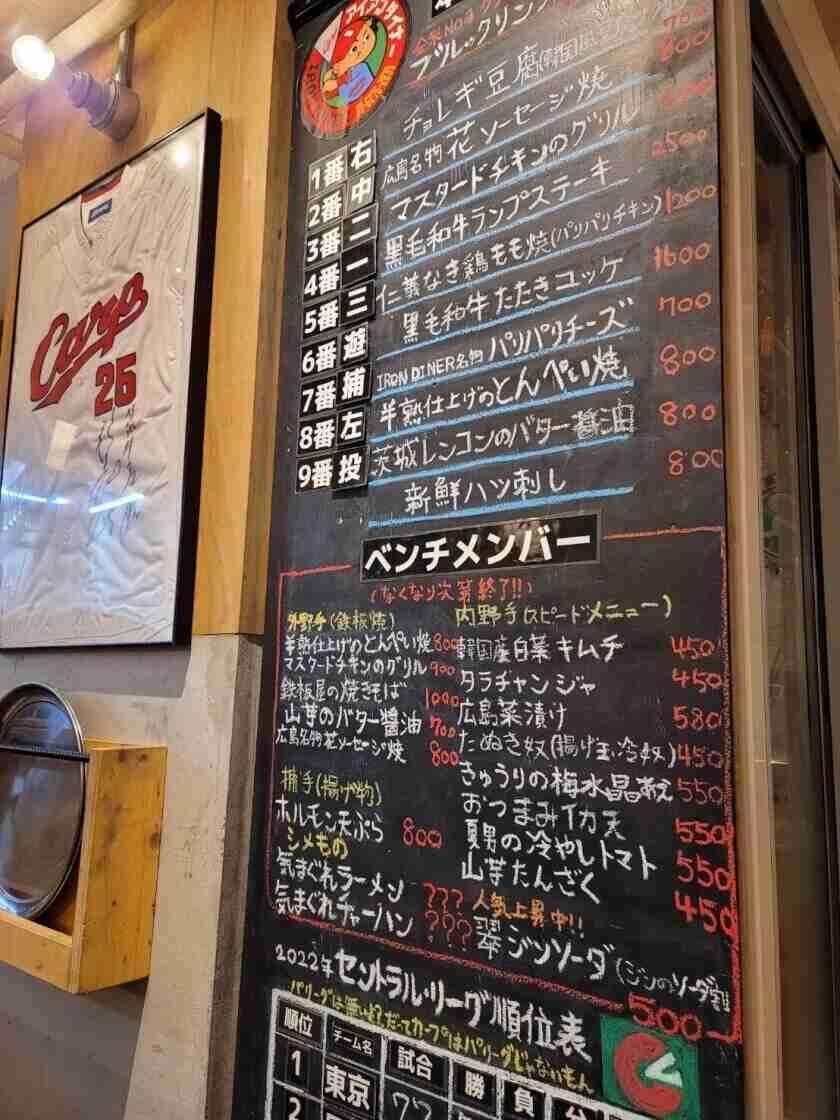 アイアンダイナー
プルックリン
700
チョレギ豆腐(韓国
800
1番 右 広島名物 花ソーセージ焼
2番 中 マスタードチキンのグリル
3番 二 黒毛和牛ランプステーキ 2500
4番 一 仁義なき鶏もも焼(パリパリチキン) 1200
5番 三 黒毛和牛たたきユッケ 1600
6番 遊 IRON DINER名物 パリパリチーズ 700
7番 捕 半熟仕上げのとんぺい焼 800
8番 左 茨城レンコンのバター醤油 800
9番 投 新鮮ハツ刺し 800
ベンチメンバー
(なくなり次第終了!!)
外野手(鉄板焼)
半熟仕上げのとんぺい焼 800
マスタードチキンのグリル 900
鉄板屋の焼きそば 1000
山芋のバター醤油 700
広島名物花ソーセージ焼 800
捕手(揚げ物)
ホルモン天ぷら 800
シメもの
気まぐれラーメン ???
気まぐれチャーハン ???
内野手(スピードメニュー)
韓国産白菜キムチ 450
タラチャンジャ 450
広島菜漬け 580
たぬき奴(揚げ玉冷奴) 450
きゅうりの梅水晶和え 550
おつまみイカ天 550
夏男の冷やしトマト 550
山芋たんざく 450
人気上昇中!!
翠ジンソーダ(ジンのソーダ割
500
2022年 セントラル・リーグ順位表
パリーグは無いよ?だってカープはパリーグじゃないもん
順位 チーム名 試合 勝 負
1 東京 77
2
Carp
25